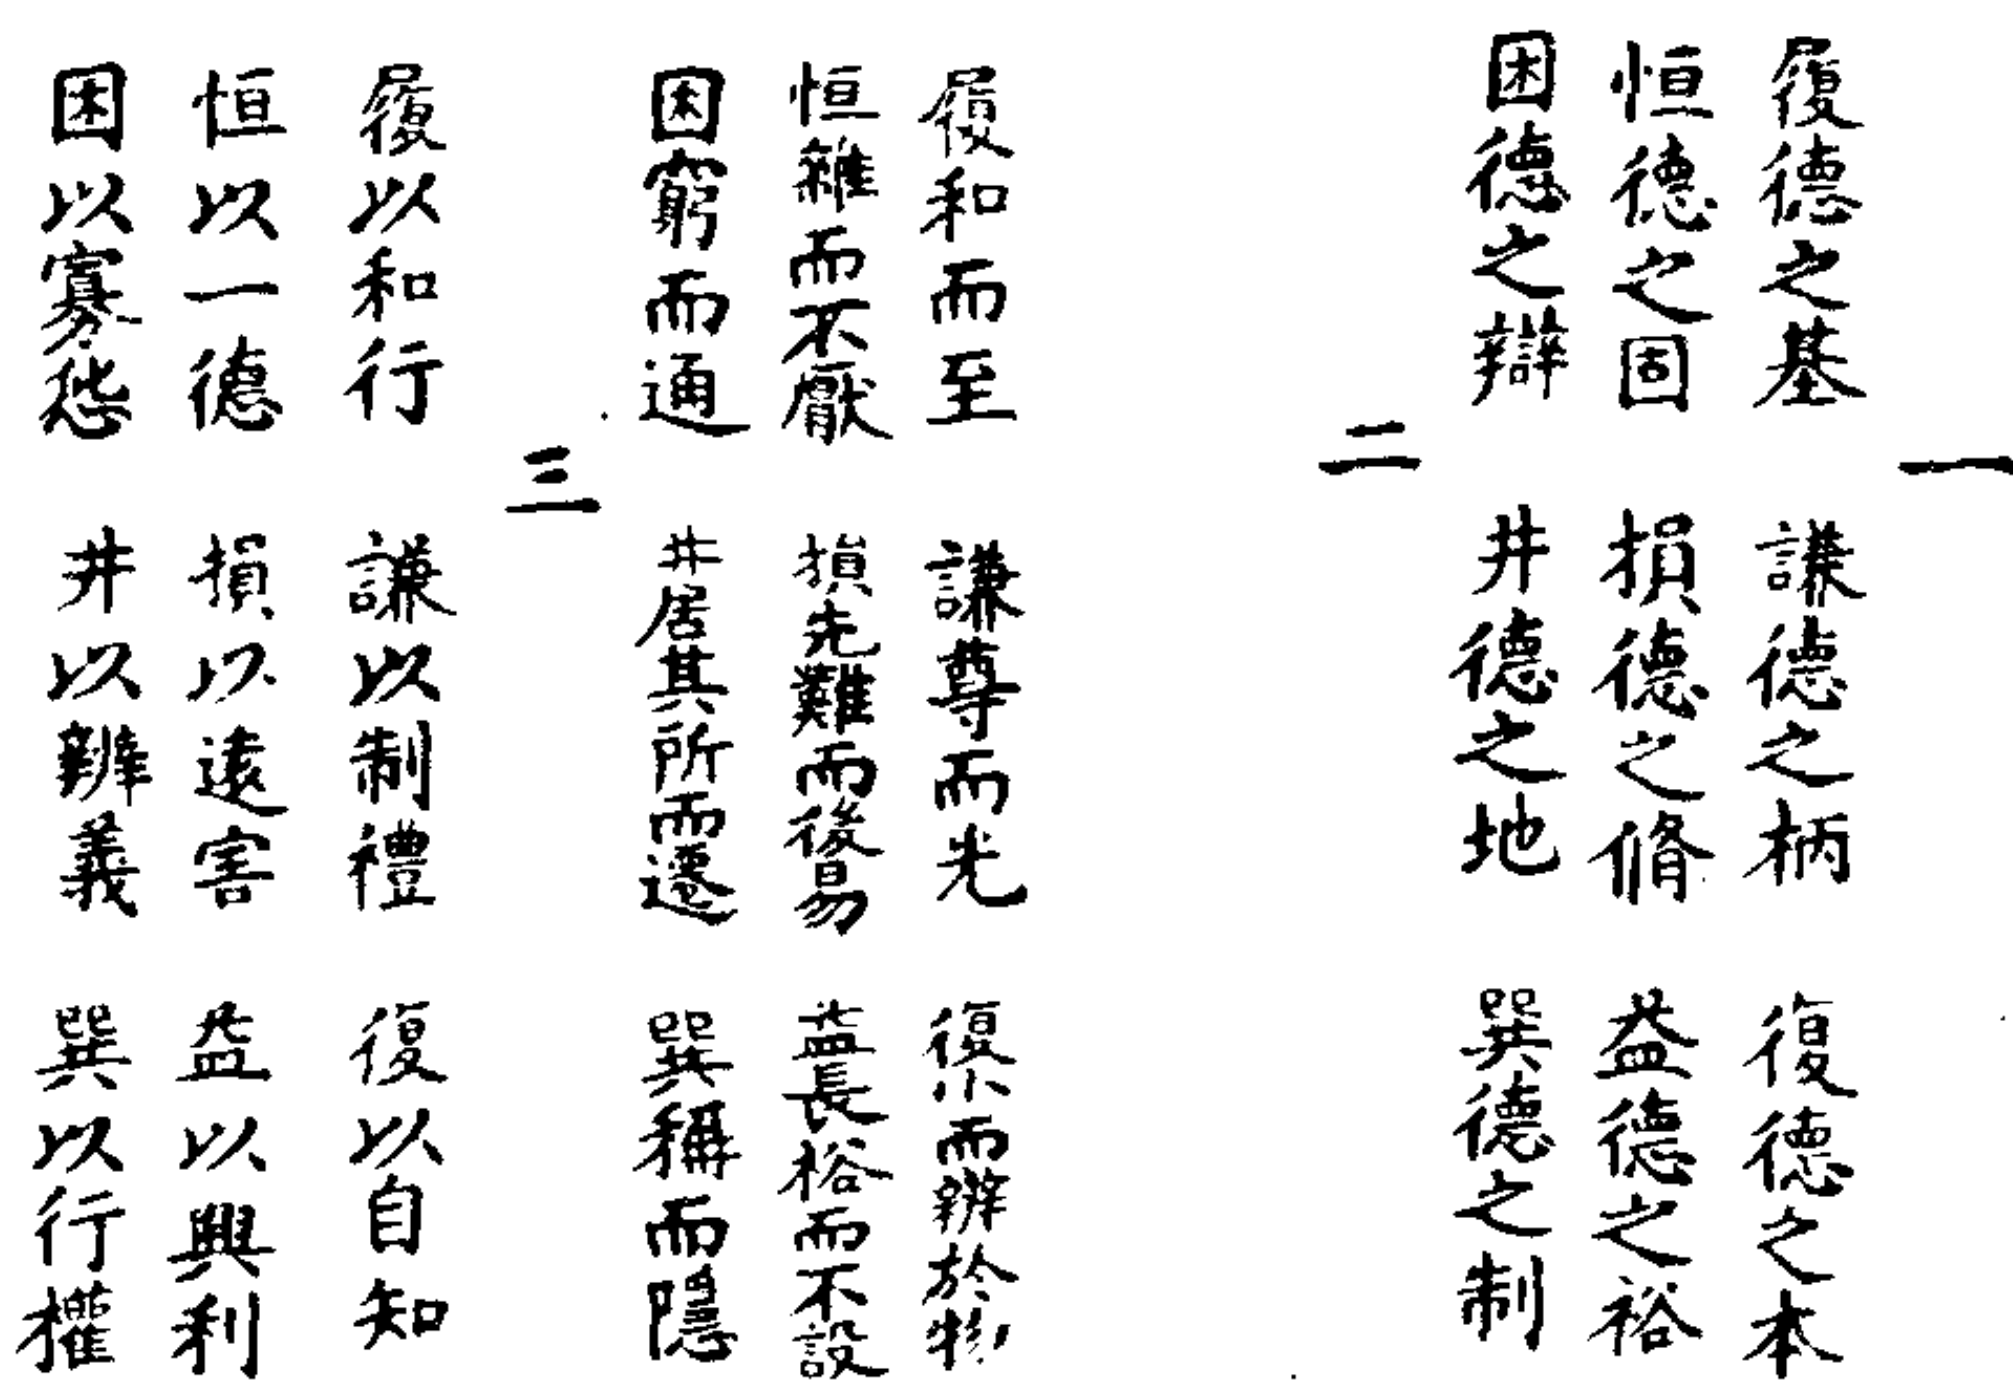 一
履德之基 謙德之柄 復德之本
恒德之固 損德之脩 益德之裕
困德之辯 井德之地 巽德之制
二
履和而至 謙尊而光 復小而辨於物
恒雜而不厭 損先難而後易 益長裕而不設
困窮而通 井居其所而遷 巽稱而隱
三
履以和行 謙以制禮 復以自知
恒以一德 損以遠害 益以興利
困以寡怨 井以辨義 巽以行權